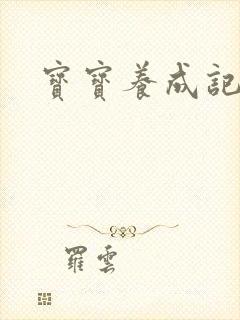 寶寶養成記
羅雲